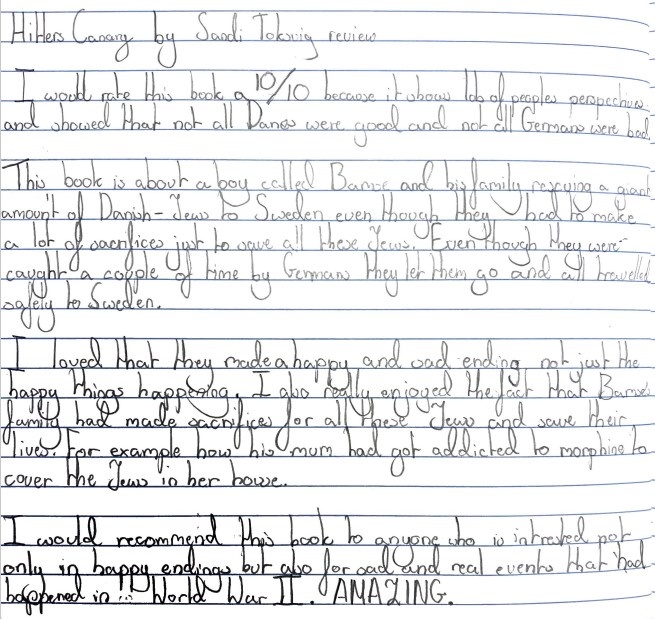 Hitlers Canary by Sandi Toksvig review
I would rate this book a 10/10 because it shows lots of peoples perspectives
and showed that not all Danes were good and not all Germans were bad.
This book is about a boy called Bamse and his family rescuing a giant
amount of Danish-Jews to Sweden even though they had to make
a lot of sacrifices just to save all these Jews. Even though they were
caught a couple of time by Germans they let them go and all travelled
safely to Sweden.
I loved that they made a happy and sad ending not just the
happy things happening. I also really enjoyed the fact that Bamses
family had made sacrifices for all these Jews and save their
lives. For example how his mum had got addicted to morphine to
cover the Jews in her house.
I would recommend this book to anyone who is intrested not
only in happy endings but also for sad and real events that had
happened in World War II. AMAZING.